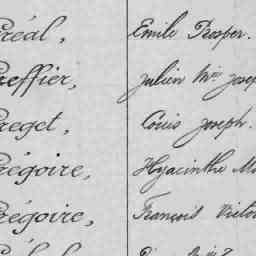 réal, Emile Prosper.
reffier, Julien Mie Josep
reget, Louis Joseph.
régoire, Hyacinthe Ma
régoire, François Victo